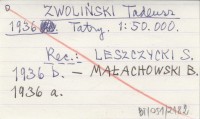 ZWOLIŃSKI Tadeusz
1936. Tatry. 1:50.000.
Rec.: LESZCZYCKI S.
1936 b. — MAŁACHOWSKI B.
1936 a.